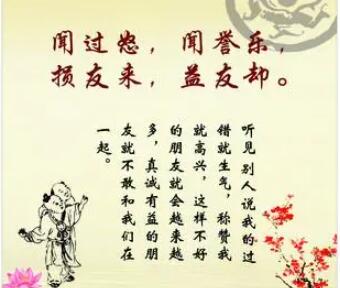 闻过怒，闻誉乐，
损友来，益友却。
听见别人说我的过
错就生气，称赞我
就高兴，这样不好
的朋友就会越来越
多，真诚有益的朋
友就不敢和我们在
一起。